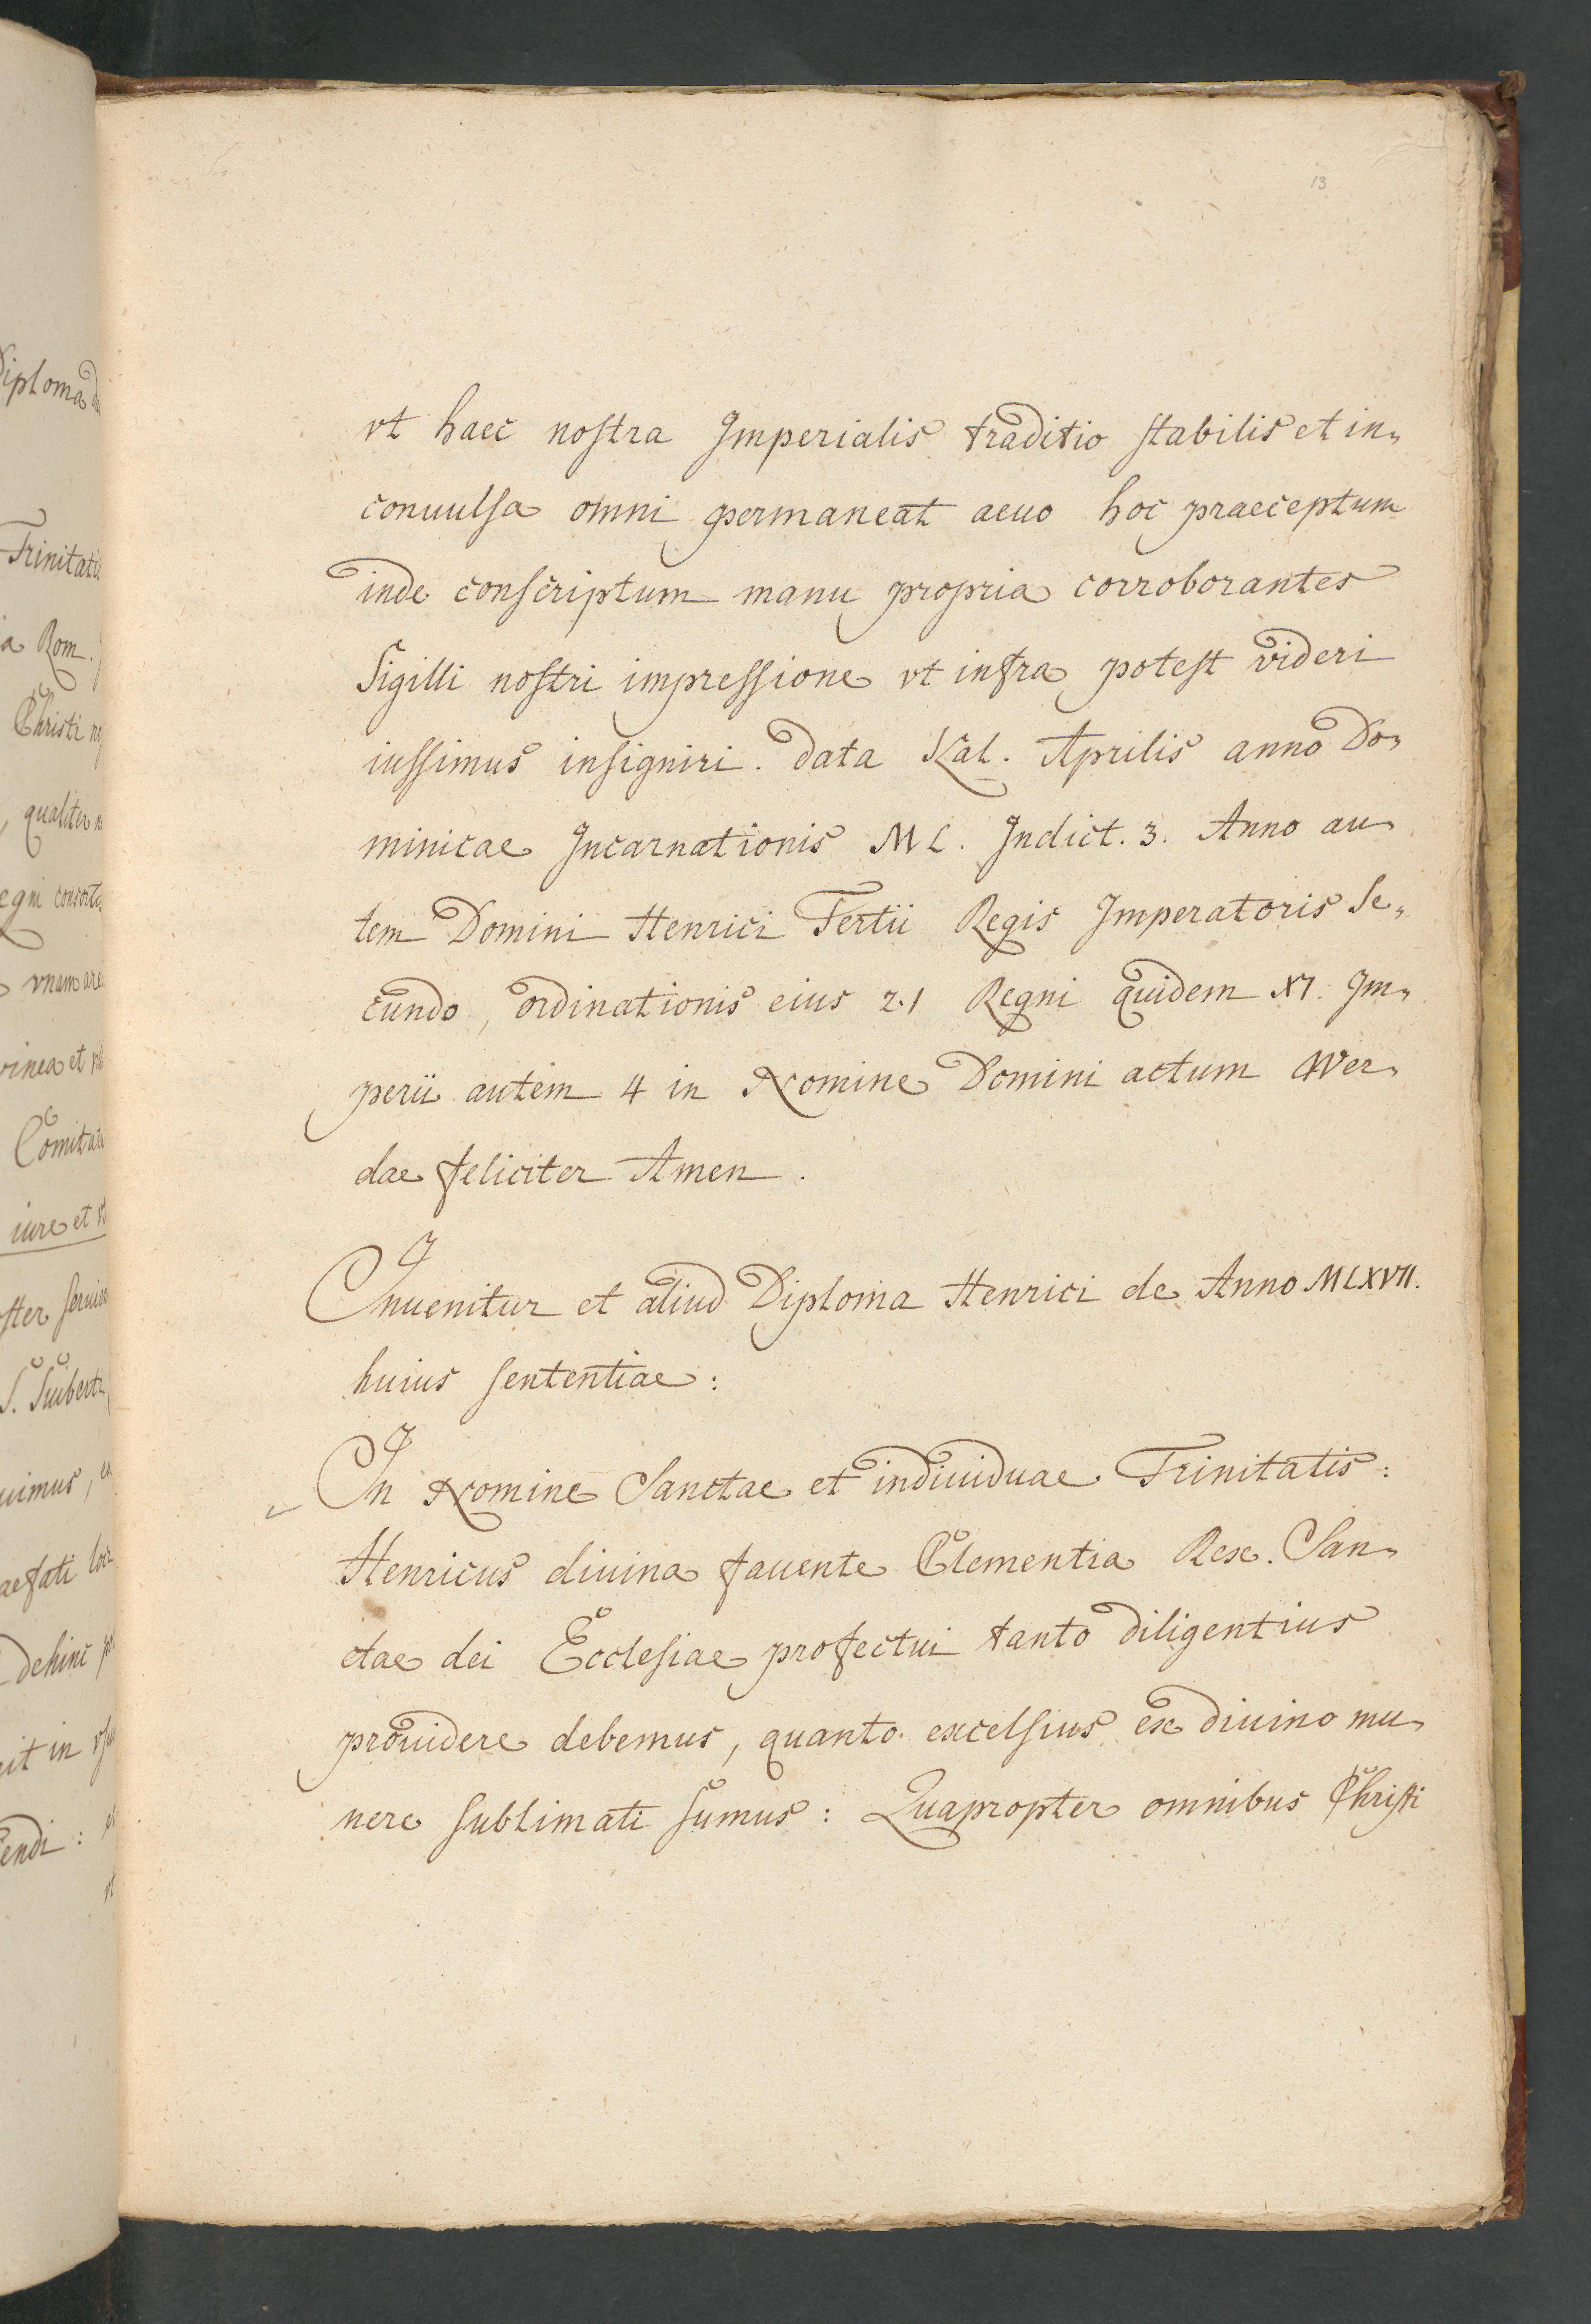 13
vt haec nostra Imperialis traditio stabilis et in„
conuulsa omni permaneat aeuo hoc praeceptum
inde conscriptum manu propria corroborantes
Sigilli nostri impressione vt infra potest videri
iussimus insigniri. data Kal. Aprilis anno Do„
minicae Incarnationis ML. Indict. 3. Anno au„
tem Domini Henrici Tertii Regis Imperatoris Se„
cundo, ordinationis eius 21 Regni quidem XI. Im„
perii autem 4 in Nomine Domini actum Wer„
dae feliciter Amen.
Inuenitur et aliud Diploma Henrici de Anno MLXVII.
huius sententiae:
In Nomine Sanctae et indiuiduae Trinitatis:
Henricus diuina fauente Clementia Rex. San„
ctae dei Ecclesiae profectui tanto diligentius
prouidere debemus, quanto excelsius ex diuino mu„
nere sublimati sumus: Quapropter omnibus Christi